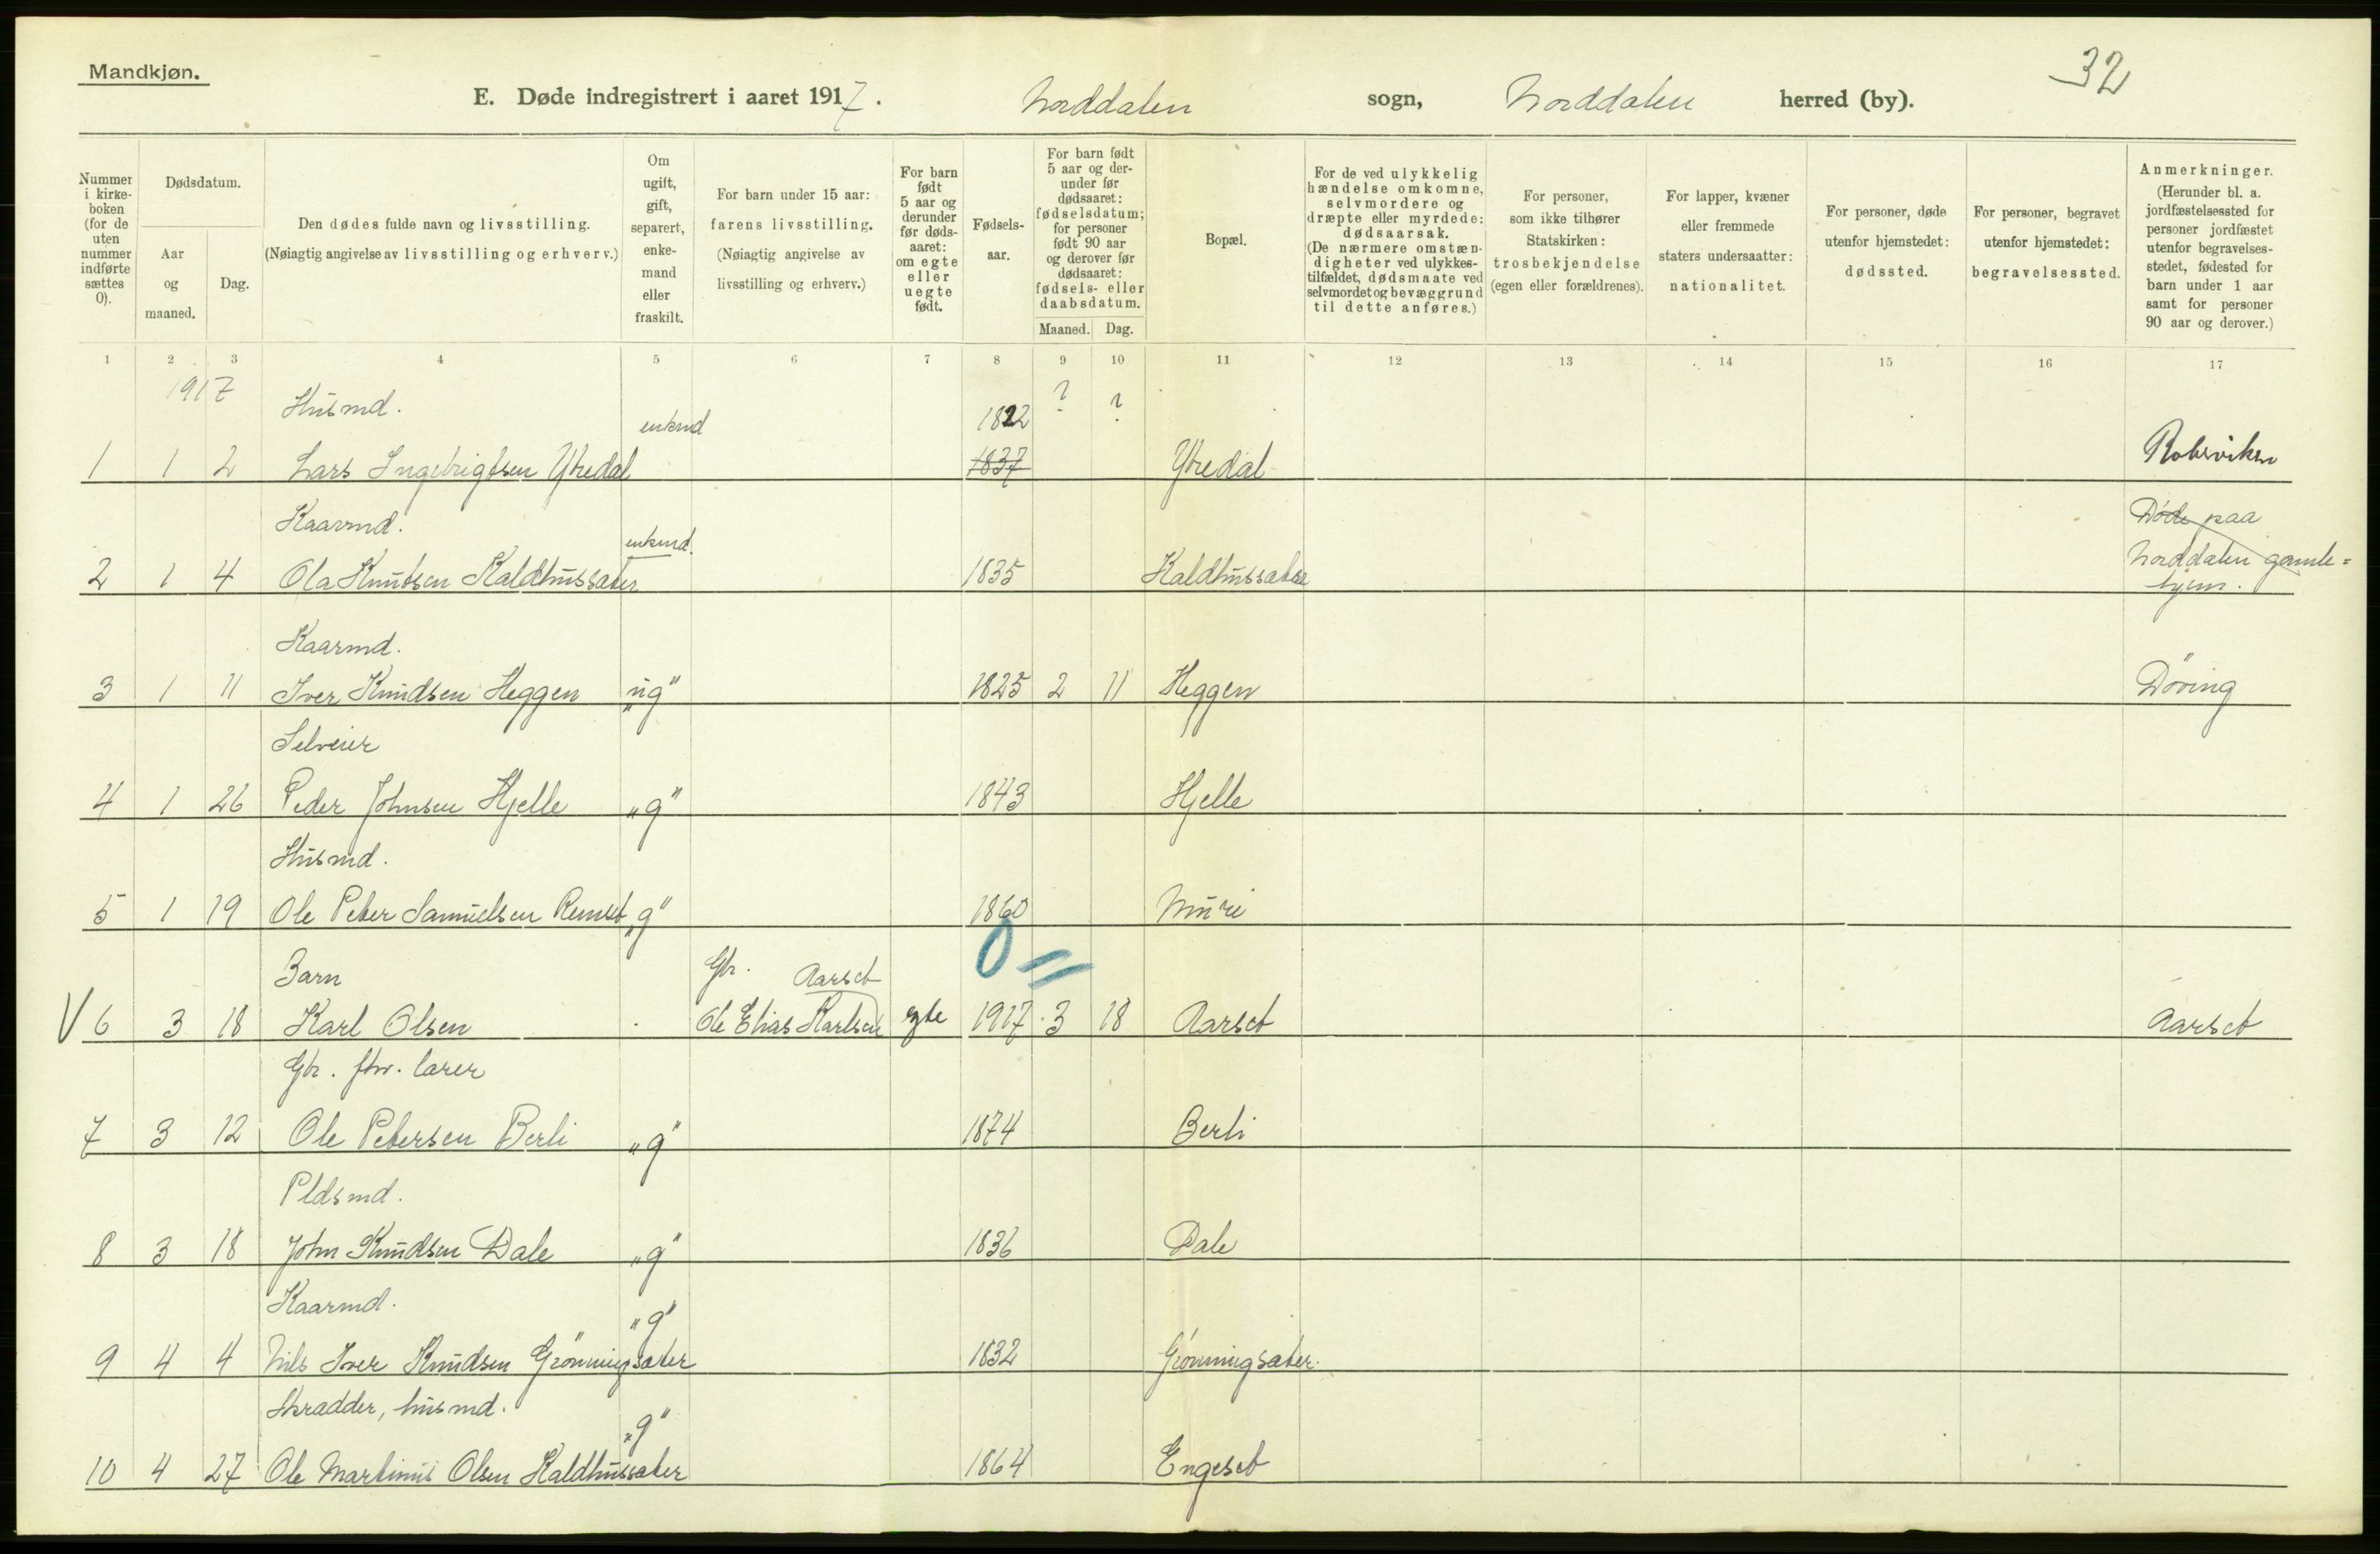 Mandkjøn.
32
E. Døde indregistrert i aaret 1917. Norddalen sogn, Norddalen herred (by).
Nummer i kirke-boken (for de uten nummer indførte sættes 0).
Dødsdatum.
Aar og maaned.
Dag.
Den dødes fulde navn og livsstilling.
(Nøiagtig angivelse av livsstilling og erhverv.)
Om ugift, gift, separert, enke-mand eller fraskilt.
For barn under 15 aar:
farens livsstilling.
(Nøiagtig angivelse av livsstilling og erhverv.)
For barn født 5 aar og derunder før døds-aaret: om egte eller uegte født.
Fødsels-aar.
For barn født 5 aar og der-under før dødsaaret: fødselsdatum; for personer født 90 aar og derover før dødsaaret: fødsels- eller daabsdatum.
Maaned. Dag.
Bopæl.
For de ved ulykkelig hændelse omkomne, selvmordere og dræpte eller myrdede: dødsaarsak.
(De nærmere omstæn-digheter ved ulykkes-tilfældet, dødsmaate ved selvmordet og bevæggrund til dette anføres.)
For personer, som ikke tilhører Statskirken: trosbekjendelse (egen eller forældrenes).
For lapper, kvæner eller fremmede staters undersaatter: nationalitet.
For personer, døde utenfor hjemstedet: dødssted.
For personer, begravet utenfor hjemstedet: begravelsessted.
Anmerkninger.
(Herunder bl. a. jordfæstelsessted for personer jordfæstet utenfor begravelses-stedet, fødested for barn under 1 aar samt for personer 90 aar og derover.)
1 2 3 4 5 6 7 8 9 10 11 12 13 14 15 16 17
1917 Husmd. enkmd 1822 ? ?
1 1 2 Lars Ingebrigtsen Ytredal 1837 Ytredal
Kaarmd. enkmd. Døde paa
2 1 4 Ola Knutsen Kaldhussæter 1835 Kaldhussæter Norddalen gamle=
hjem.
Kaarmd.
3 1 11 Iver Knudsen Heggen "ug" 1825 2 11 Heggen Døving
Selveier
4 1 26 Peder Johnsen Hjelle "g" 1843 Hjelle
Husmd.
5 1 19 Ole Peter Samuelsen Remset "g" 1860 Muri
0 =
Barn Gbr. Aarset
V 6 3 18 Karl Olsen Ole Elias Karlsen egte 1917 3 18 Aarset Aarset
Gbr. fhv. lærer
7 3 12 Ole Petersen Berli "g" 1874 Berli
Pldsmd.
8 3 18 John Knudsen Dale "g" 1836 Dale
Kaarmd. "g"
9 4 4 Nils Iver Knudsen Grønningsæter 1832 Grønningsæter.
Skrædder, husmd. "g"
10 4 27 Ole Martinus Olsen Kaldhussæter 1864 Engeset